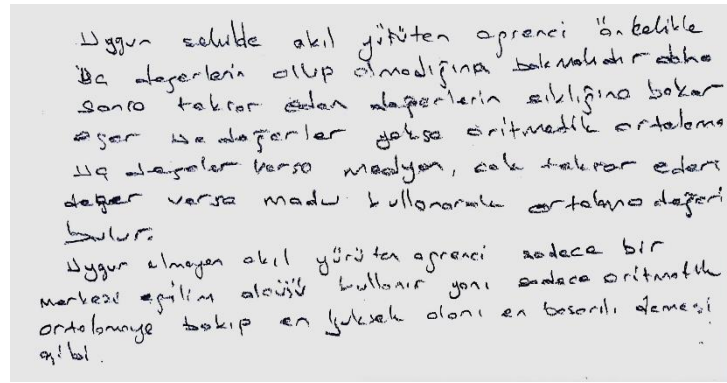 Uygun şekilde akıl yürüten öğrenci öncelikle
Uç değerlerin olup olmadığına bakmalıdır daha
sonra tekrar eden değerlerin sıklığına bakar
eğer uç değerler yoksa aritmetik ortalama
Uç değerler varsa medyan, çok tekrar eden
değer varsa modu kullanarak ortalama değeri
bulur.
Uygun olmayan akıl yürüten öğrenci sadece bir
merkezi eğilim ölçüsü kullanır yani sadece aritmetik
ortalamaya bakıp en yüksek olanı en başarılı demesi
gibi.